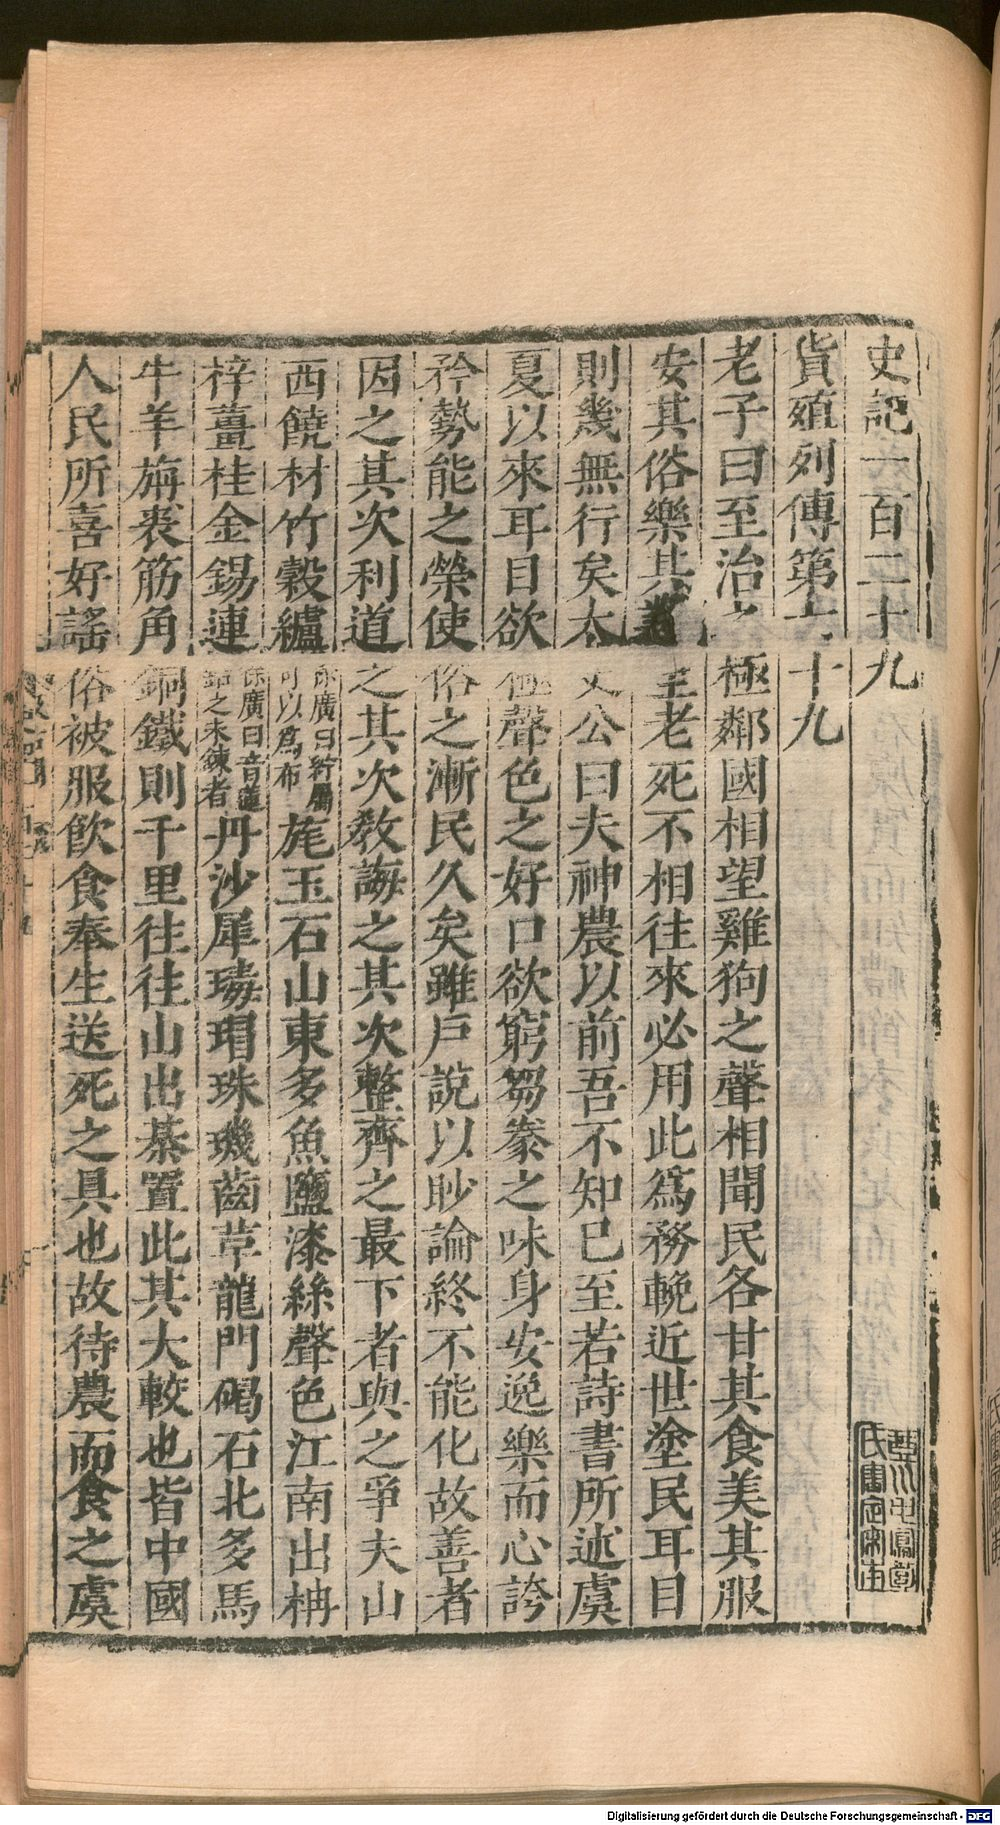 史記一百二十九
貨殖列傳第六十九
老子曰至治之極鄰國相望雞狗之聲相聞民各甘其食美其服
安其俗樂其業至老死不相往來必用此爲務輓近世塗民耳目
則幾無行矣太史公曰夫神農以前吾不知已至若詩書所述虞
夏以來耳目欲極聲色之好口欲窮芻豢之味身安逸樂而心誇
矜勢能之榮使俗之漸民久矣雖戶說以眇論終不能化故善者
因之其次利道之其次教誨之其次整齊之最下者與之爭夫山
西饒材竹穀纑徐廣曰紵屬可以爲布旄玉石山東多魚鹽漆絲聲色江南出枏
梓薑桂金錫連徐廣曰音蓮鉛之未鍊者丹沙犀瑇瑁珠璣齒革龍門碣石北多馬
牛羊旃裘筋角銅鐵則千里往往山出棊置此其大較也皆中國
人民所喜好謠俗被服飲食奉生送死之具也故待農而食之虞
Digitalisierung gefördert durch die Deutsche Forschungsgemeinschaft - DFG